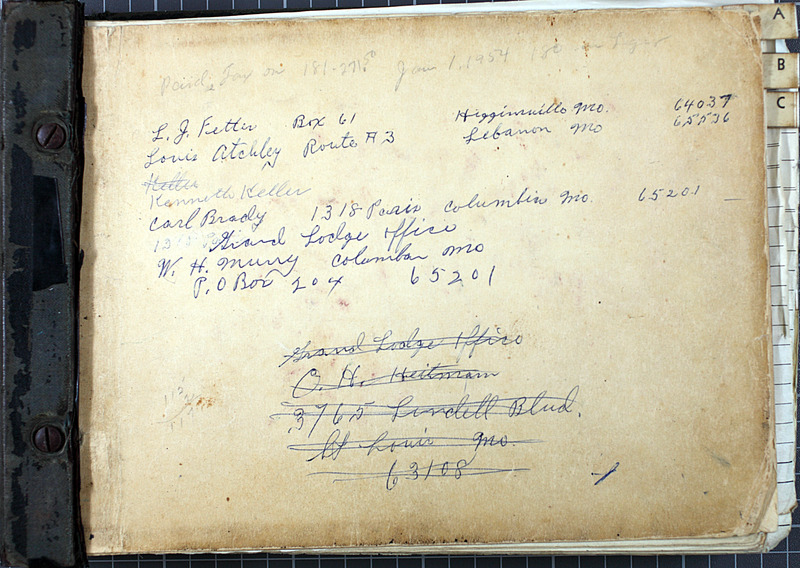 Paid Tax on 181- Jan 1, 1954 180
L. J. Fetter Box 61 Higginsville Mo. 64037
Louis Atchley Route #3 Lebanon Mo 65536
Keller
Kenneth Keller
Carl Brady 1318 Paris Columbia Mo. 65201
Grand Lodge Office
W. H. Murry Columbia Mo
P.O Box 204 65201
Grand Lodge Office
O. H. Hettmann
3765 Lindell Blvd.
St Louis Mo.
63108
A
B
C